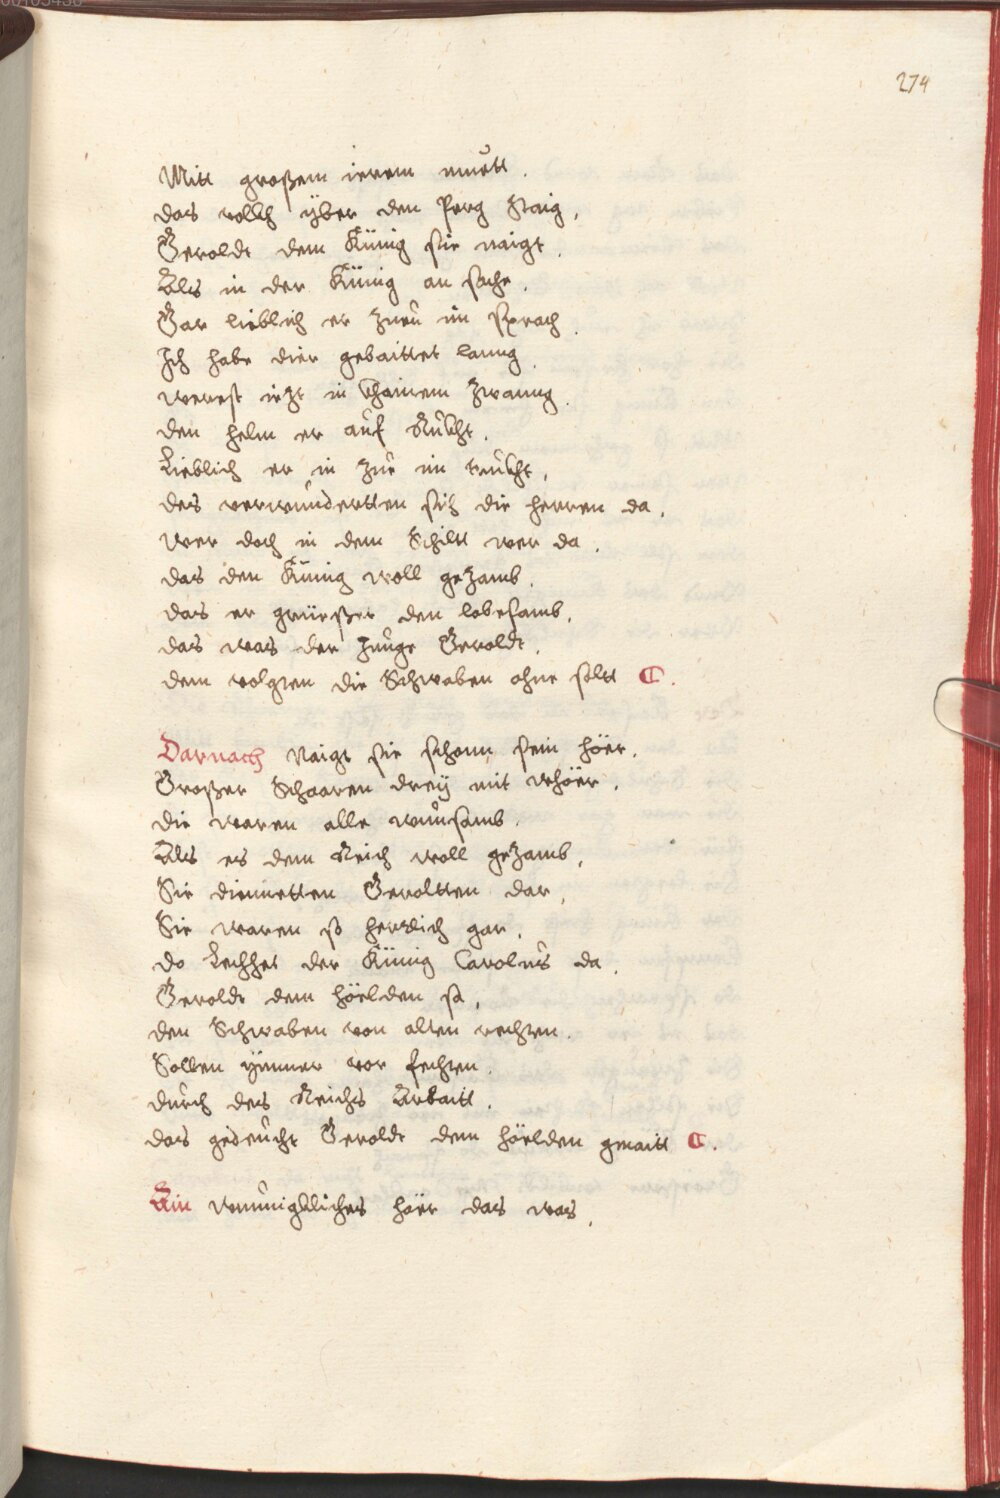 274
Mitt großem ierem muett.
das vollch yber den Perg staig,
Geroldt dem Künig sie naigt.
Als in der Künig an sache,
Gar lieblich er zueu im sprach.
Ich habe dier gebaittet lanng
werest iezt in khainem zwanng.
den helm er auf Rukht.
Lieblich er in zue im trukht,
des verwundertten sich die herren da,
wer doch in dem Schiltt wer da.
das den Künig woll gezamb.
das er grüeßet den lobesamb,
das was der Junge Geroldt,
dem volgten die Schwaben ohne soltt C.
Darnach Naigt sie schonn sein höer,
Großer Schaaren drey mit whöer,
die waren alle wunsamb.
Als es dem Reich woll gezamb,
Sie dienetten Geroltten dar,
Sie waren so herrlich gar,
do Lechhet der Künig Carolus da,
Geroldt dem höelden sa,
den Schwaben von alten rechten.
Sollen ymmer vor fechten.
durch des Reichs Arbaitt.
das gedeucht Geroldt dem höelden gmaitt C.
Ain wunnigkliches höer das was,